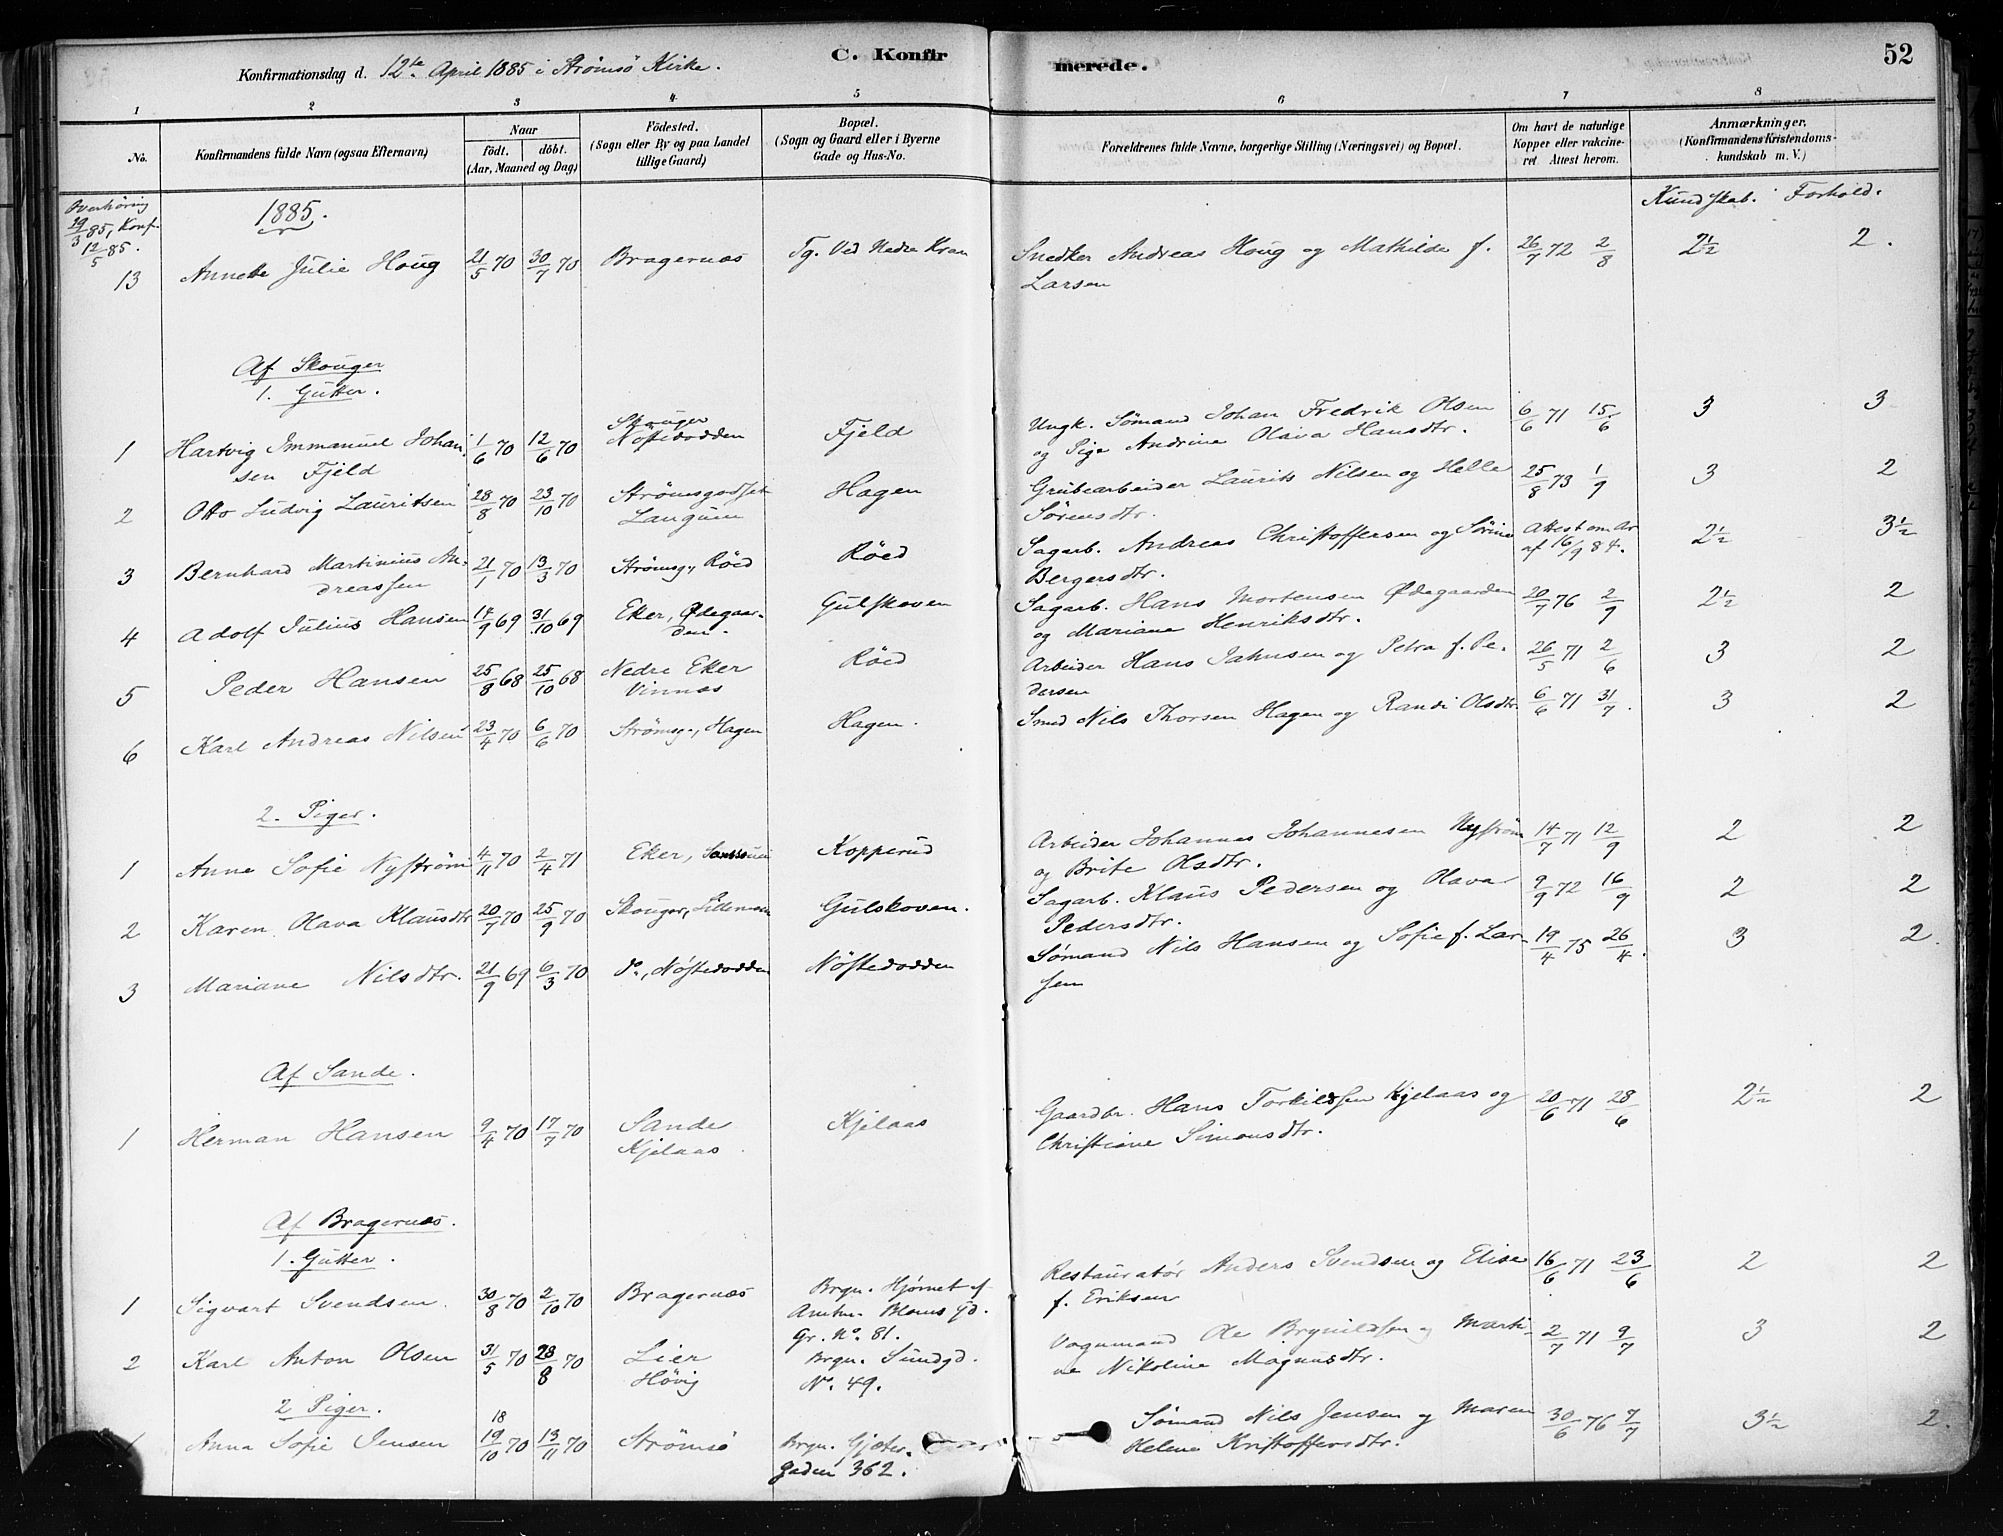 52
Konfirmationsdag d. 12te April 1885 i Strömsö Kirke. C. Konfir merede.
1 2 3 4 5 6 7 8
No. Konfirmandens fulde Navn (ogsaa Efternavn) Naar födt. döbt. (Aar, Maaned og Dag) Födested. (Sogn eller By og paa Landet tillige Gaard) Bopæl. (Sogn og Gaard eller i Byerne Gade og Hus-No. Forældrenes fulde Navne, borgerlige Stilling (Næringsvei) og Bopæl. Om havt de naturlige Kopper eller vakcineret. Attest herom. Anmærkninger. (Konfirmandens Kristendomskundskab m. V.)
Overhöring 29/3 85, Konf. 12/5 85. 1885. Kundskab. Forhold.
13 Annette Julie Houg 21/5 70 30/7 70 Bragernæs Tg. Ved Nedre Kran Snedker Andreas Houg og Mathilde f. 26/7 72 2/8 2½ 2.
Larsen
Af Skouger
1. Gutter.
1 Hartvig Immanuel Johan- 1/6 70 12/6 70 Skouger Nöstedodden Fjeld Ungk. Sømand Johan Fredrik Olsen 6/6 71 15/6 3 3
sen Fjeld og Pige Andrine Olava Hansdtr.
2 Otto Ludvig Lauritsen 28/8 70 23/10 70 Strömsgodset Hagen Grubearbeider Laurits Nilsen og Helle 25/8 73 1/9 3 2
Langum Sörensdtr.
3 Bernhard Martinius An- 21/1 70 13/3 70 Strömsg., Röed Röed Sagarb. Andreas Christoffersen og Sörine Attest om Ar af 16/9 84. 2½ 3½
dreassen Bergersdtr.
4 Adolf Julius Hansen 14/9 69 31/10 69 Eker, Ødegaar- Gulskoven Sagarb. Hans Mortensen Ødegaarden 20/7 76 2/9 2½ 2
den. og Mariane Henriksdtr.
5 Peder Hansen 25/8 68 25/10 68 Nedre Eker Röed Arbeider Hans Jahnsen og Petra f. Pe- 26/5 71 2/6 3 2
Vinnæs dersen
6 Karl Andreas Nilsen 23/4 70 6/6 70 Strömsg., Hagen Hagen. Smed Nils Thorsen Hagen og Randi Olsdtr. 6/6 71 31/7. 3 2
2. Piger.
1 Anne Sofie Nyström 4/11 70 2/4 71 Eker, Kopperud Arbeider Johannes Johannesen Nyström 14/7 71 12/9 2 2
og Brite Olsdtr.
2 Karen Olava Klausdtr 20/7 70 25/9 70 Skouger, Gulskoven. Sagarb. Klaus Pedersen og Olava 9/9 72 16/9 2 2
Pedersdtr.
3 Mariane Nilsdtr. 21/9 69 6/3 70 do., Nöstedodden Nöstedodden Sømand Nils Hansen og Sofie f. Lar- 19/4 75 26/4. 3 2.
sen
Af Sande.
1 Herman Hansen 9/4 70 17/7 70 Sande Kjelaas Gaardbr. Hans Torkildsen Kjelaas og 20/6 71 28/6 2½ 2
Kjelaas Christiane Simonsdtr.
Af Bragernæs.
1. Gutter.
1 Sigvart Svendsen. 30/8 70 2/10 70 Bragernæs Brgn. Hjørnet af Restauratør Anders Svendsen og Elise 16/6 71 23/6 2 2
Amtm. Bloms Gd. f. Eriksen
Gr. No. 81.
2 Karl Anton Olsen 31/5 70 28/8 70 Lier Brgn. Sundgd. Vognmand Ole Brynildsen og Marti- 2/7 71 9/7 3 2
Hövig No. 49. ne Nikoline Magnusdtr.
2 Piger.
1 Anna Sofie Jensen 18 19/10 70 13/11 70 Strömsö Brgn. Gjæter- Sømand Nils Jensen og Maren 30/6 76 7/7 3½ 2.
gaden 362. Helene Kristoffersdtr.